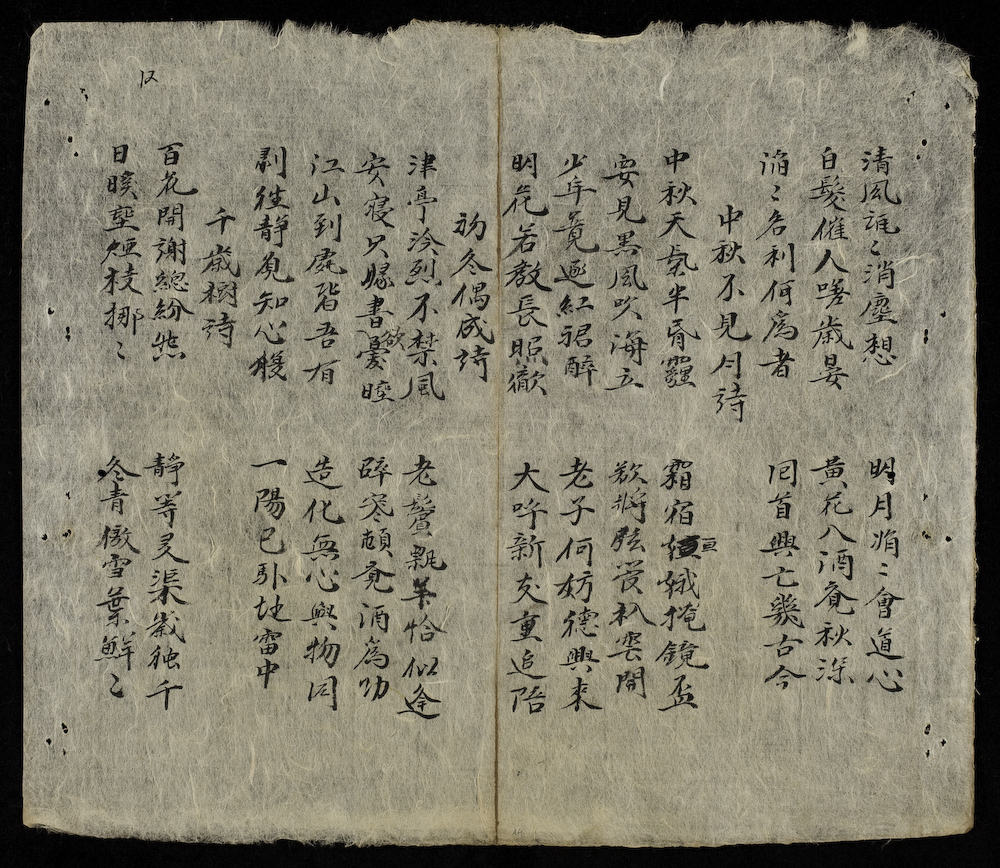 清風謖〻消塵想 明月涓〻會道心
白髮催人嗟歲晏 黃花入酒覺秋深
滔〻名利何爲者 回首興亡幾古今
中秋不見月詩
中秋天氣半霄霾 宿絨掩鏡盃
要見黑風吹海立 欲將弦管趁雲開
少年竟逐紅裙醉 老子何妨德興來
明花若教長照徹 大吟新友重追陪
初冬偶成詩
津亭冷烈不禁風 老鬢飄羊恰似逢
安寢只緣書憂欲睦 碎寒頓覺酒爲功
江山到處皆吾有 造化無心與物同
剥往靜觀知心複 一陽已卧地雷中
千歲樹詩
百花開謝總紛然 靜等灵渠歲独千
日暖 枝挪〻 冬青傲雪葉鮮〻